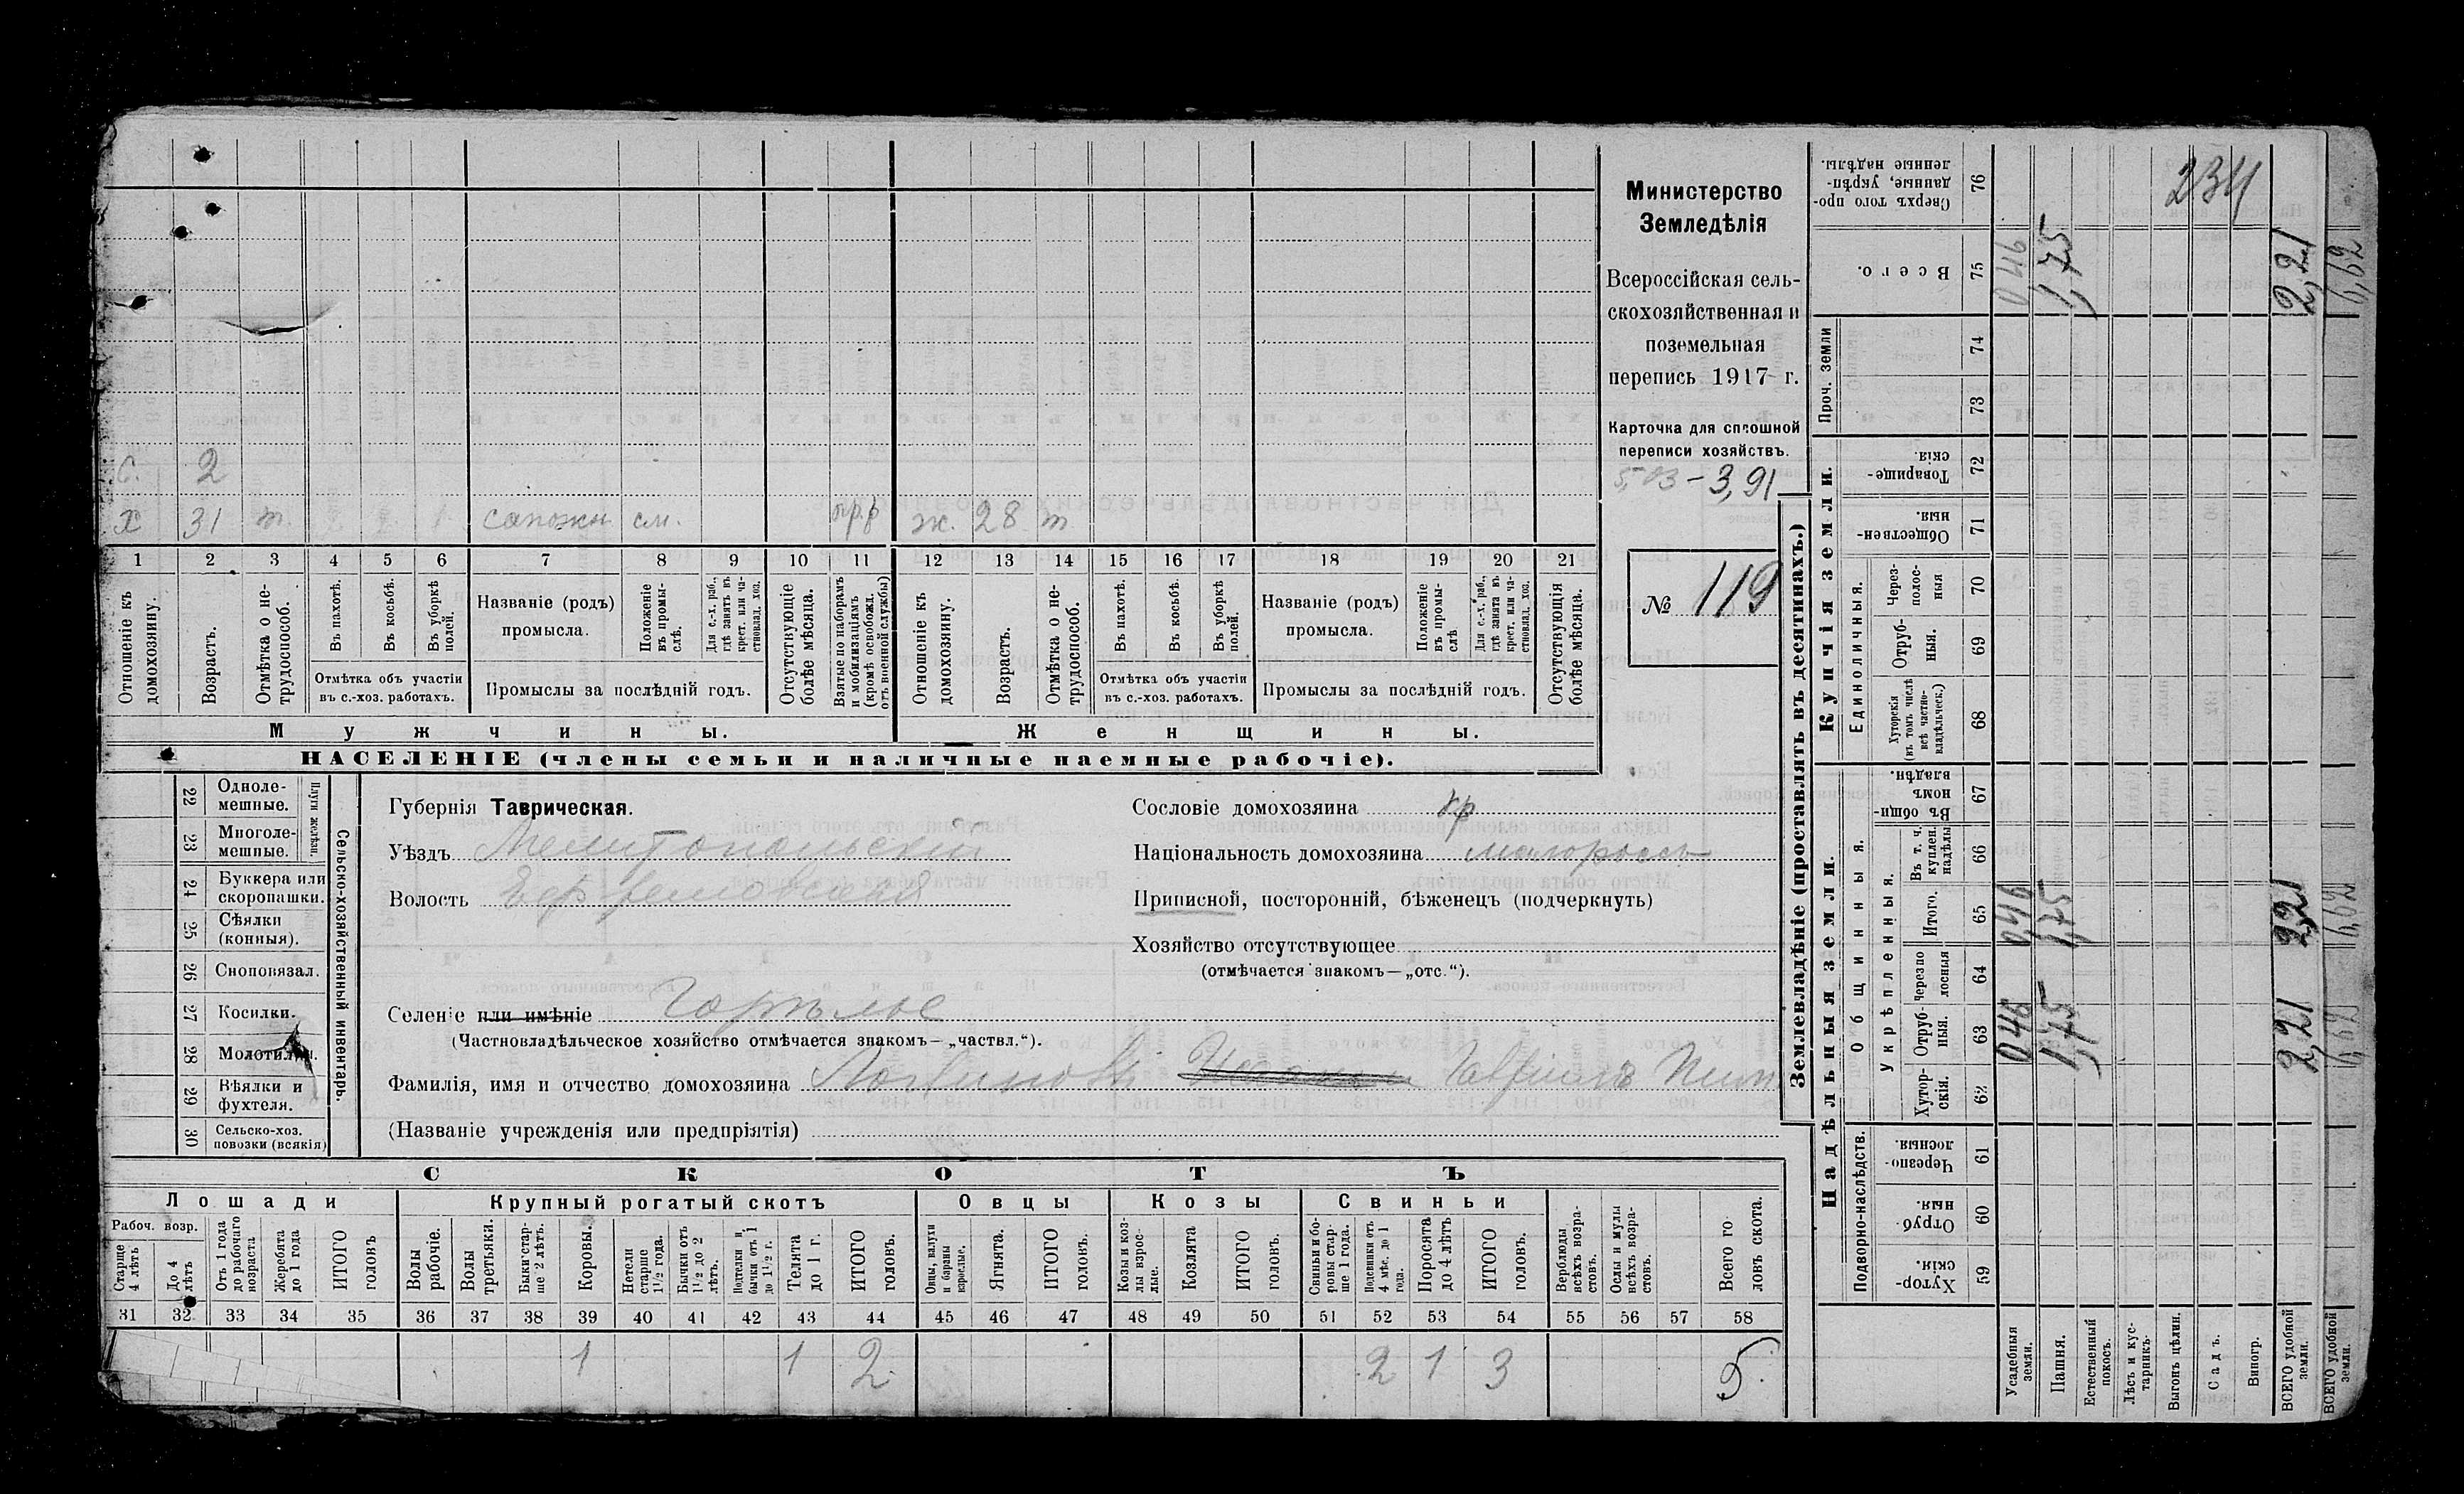 Министерство
Земледѣлія
Всероссійская сель-
скохозяйственная и
поземельная
перепись 1917 г.
Карточка для сплошной
переписи хозяйствъ.
3,91
№ 119
с. 2
х 31 т. сапожн см. ж. 28 т
1 2 3 4 5 6 7 8 9 10 11 12 13 14 15 16 17 18 19 20 21
Отношеніе къ домохозяину.
Возрастъ.
Отмѣтка о не-трудоспособ.
Въ пахотѣ.
Въ косьбѣ.
Въ уборкѣ полей.
Отмѣтка объ участіи въ с.-хоз. работахъ.
Названіе (родъ) промысла.
Положеніе въ промы-слѣ.
Для с.-х. раб., гдѣ занятъ въ крест. или ча-стновлад. хоз.
Промыслы за послѣдній годъ.
Отсутствующіе болѣе мѣсяца.
Взятые по наборамъ и мобилизаціямъ (кромѣ освобожд. отъ военной службы)
Отношеніе къ домохозяину.
Возрастъ.
Отмѣтка о не-трудоспособ.
Въ пахотѣ.
Въ косьбѣ.
Въ уборкѣ полей.
Отмѣтка объ участіи въ с.-хоз. работахъ.
Названіе (родъ) промысла.
Положеніе въ промы-слѣ
Для с.-х. раб., гдѣ занята въ крест. или ча-стновлад. хоз.
Промыслы за послѣдній годъ.
Отсутствующія болѣе мѣсяца.
Мужчины.
Женщины.
НАСЕЛЕНІЕ (члены семьи и наличные наемные рабочіе).
Сельско-хозяйственный инвентарь.
Плуги желѣзн.
22 Одноле-мешные.
23 Многоле-мешные.
24 Буккера или скоропашки.
25 Сѣялки (конныя).
26 Сноповязал.
27 Косилки.
28 Молотилки.
29 Вѣялки и фухтеля.
30 Сельско-хоз. повозки (всякія)
Губернія Таврическая.
Уѣздъ Мелитопольскій
Волость Ефремовская
Селеніе или имѣніе Горѣлое
(Частновладѣльческое хозяйство отмѣчается знакомъ—„частвл.“).
Фамилія, имя и отчество домохозяина
(Названіе учрежденія или предпріятія)
Сословіе домохозяина кр
Національность домохозяина малороссъ
Приписной, посторонній, бѣженецъ (подчеркнуть)
Хозяйство отсутствующее
(отмѣчается знакомъ—„отс.“).
СКОТЪ
Лошади
Крупный рогатый скотъ
Овцы
Козы
Свиньи
Рабоч. возр.
Старше 4 лѣтъ
До 4 лѣтъ
Отъ 1 года до рабочаго возраста
Жеребята до 1 года
ИТОГО головъ
Волы рабочіе.
Волы третьяки.
Быки стар-ше 2 лѣтъ.
Коровы.
Нетели старше 1½ года.
Бычки отъ 1½ до 2 лѣтъ.
Подтелки и бычки отъ 1 до 1½ г.
Телята до 1 г.
ИТОГО головъ.
Овцы, валухи и бараны взрослые.
Ягнята.
ИТОГО головъ.
Козы и коз-лы взрос-лые.
Козлята
ИТОГО головъ.
Свиньи и бо-ровы стар-ше 1 года.
Подсвинки отъ 4 мѣс. до 1 года.
Поросята до 4 лѣтъ
ИТОГО головъ.
Верблюды всѣхъ возра-стовъ.
Ослы и мулы всѣхъ возра-стовъ.
Всего го-ловъ скота.
31 32 33 34 35 36 37 38 39 40 41 42 43 44 45 46 47 48 49 50 51 52 53 54 55 56 57 58
1 1 2 2 1 3 5
Землевладѣніе (проставлять въ десятинахъ.)
Надѣльныя земли.
Купчія земли.
Проч. земли
Подворно-наслѣдств.
Общинныя.
Укрѣпленныя.
Единоличныя.
Сверхъ того про-данные, укрѣп-ленные надѣлы. 76
Всего. 75
74
73
Товарище-скія. 72
Обществен-ныя. 71
Через-полос-ныя 70
Отруб-ныя. 69
Хуторскія (въ томъ числѣ всѣ частно-владѣльческ.) 68
Въ общи-номъ владѣн. 67
Въ т. ч. куплен. надѣлы 66
Итого. 65
Черезпо-лосныя 64
Отруб-ныя. 63
Хутор-скія. 62
Черезпо-лосныя. 61
Отруб-ныя. 60
Хутор-скія. 59
Усадебныя земли.
Пашня.
Естественный покосъ.
Лѣсъ и кус-тарникъ.
Выгонъ цѣлин.
Садъ.
Виногр.
ВСЕГО удобной земли.
ВСЕГО удобной земли.
234
046 1,75 2,21 6,62
046 1,75 2,21 6,62
046 1,75 2,21 6,62